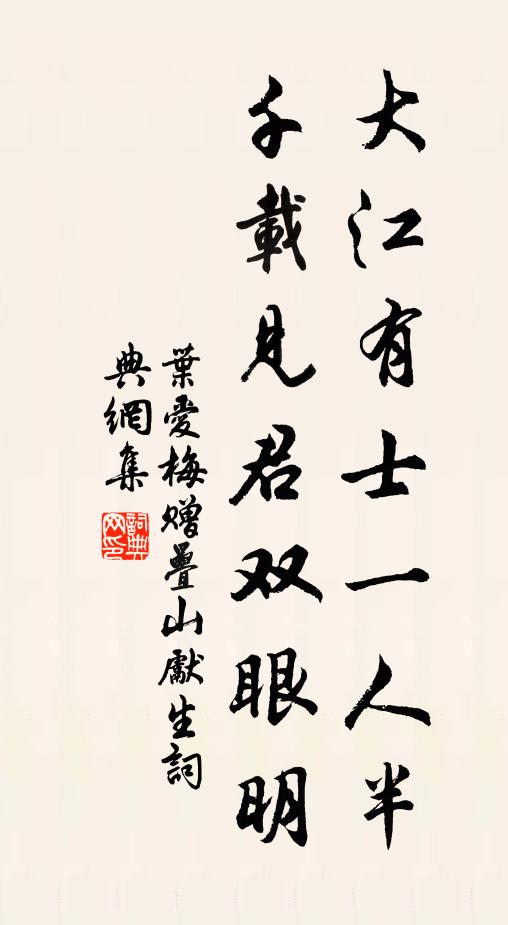 大江有士一人半
千載見君双眼明
葉愛梅贈疊山獻生詞
典網集
詞典網印